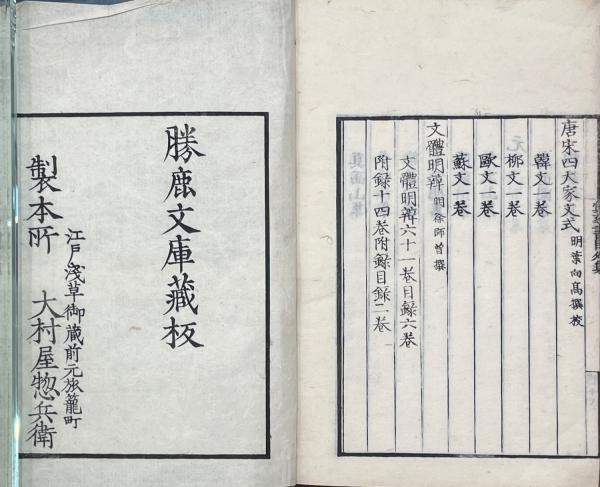 唐宋四大家文式 明葉向高撰校
韓文一卷
柳文一卷
歐文一卷
蘇文一卷
文體明辯 明徐師曾撰
文體明辯六十一卷目録六卷
附録十四卷附録目録二卷
勝鹿文庫藏板
江戸淺草御蔵前元旅籠町
製本所 大村屋惣兵衛